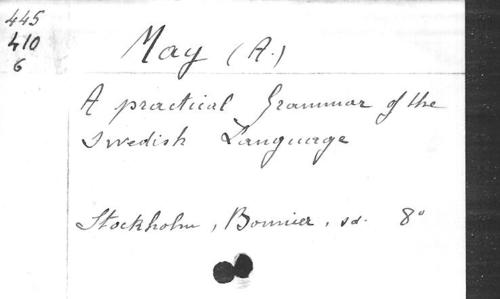 445
410
6
May (A.)
A practical Grammar of the
Swedish Language
Stockholm, Bonnier, sd. 8°